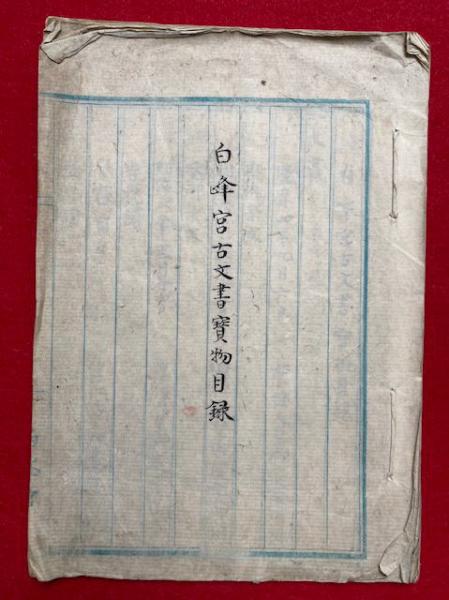 白峰宮古文書寶物目録